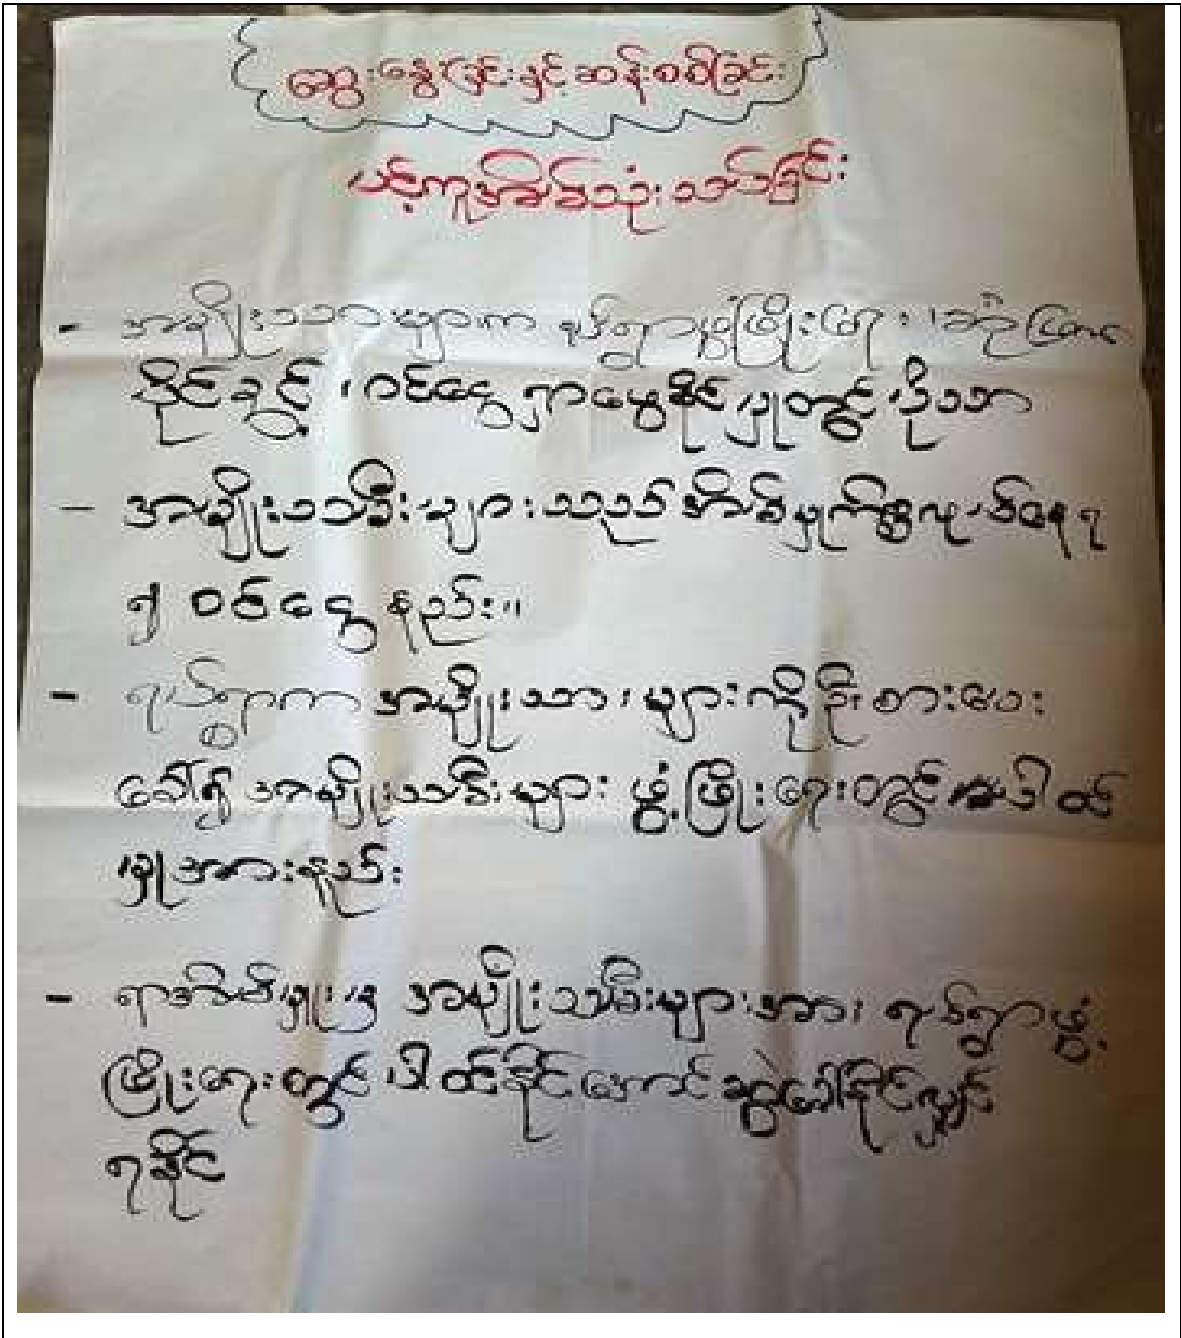 ဆွေးနွေးခြင်းနှင့်ဆန်းစစ်ခြင်း
ပင့်ကူအိမ်သုံးသပ်ခြင်း
- အမျိုးသားများက ရပ်ရွာဖွံ့ဖြိုးရေး
ပိုင်ခွင့်၊ ဝင်ငွေရှာဖွေနိုင်မှုတွင်ပိုသာ
- အမျိုးသမီးများသည်အိမ်မှုကိစ္စလုပ်နေရ
၍ ဝင်ငွေနည်း။
- ရပ်ရွာက အမျိုးသားများကိုဦးစားပေး
ခေါ်၍ အမျိုးသမီးများ ဖွံ့ဖြိုးရေးတွင်မပါဝင်
မှုအားနည်း
- ရာအိမ်မှူးမှ အမျိုးသမီးများအား ရပ်ရွာဖွံ့
ဖြိုးရေးတွင် ပါဝင်နိုင်အောင်ဆွဲခေါ်နိုင်လျှင်
ရနိုင်